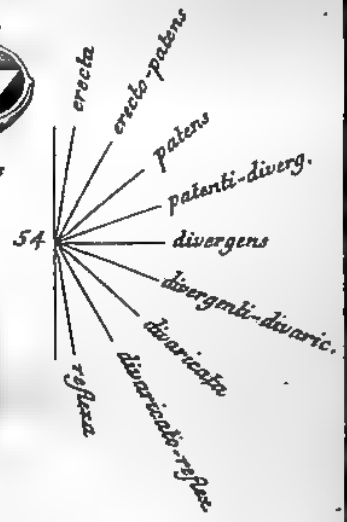 erecta
erecto-patens
patens
patenti-diverg.
54
divergens
divergenti-divaric.
divaricata
divaricato-reflex.
reflexa